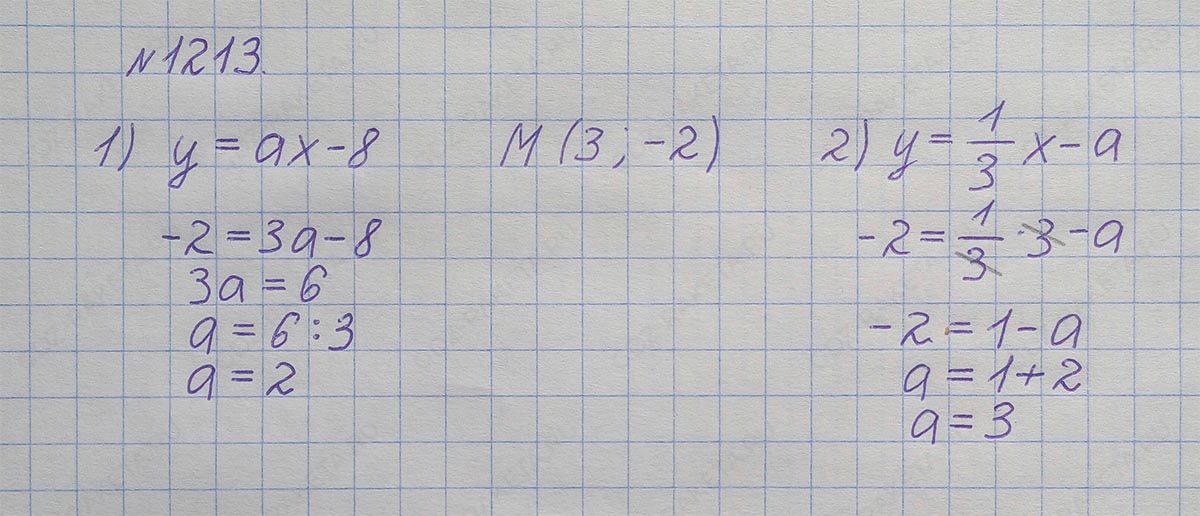 №1213.
1) y = ax - 8
-2 = 3a - 8
3a = 6
a = 6 : 3
a = 2
M (3; -2)
2) y = 1/3 x - a
-2 = 1/3 · 3 - a
-2 = 1 - a
a = 1 + 2
a = 3